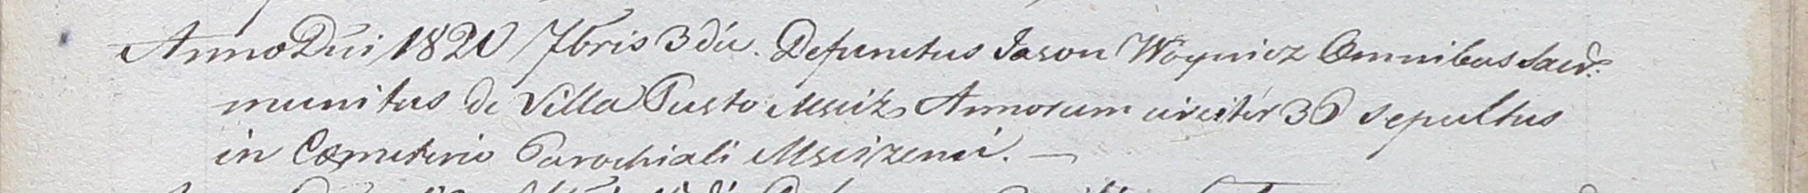 Anno Dni 1820 7bris 3 die. Defunctus Jason Woynicz Omnibus Sacr.
munitus de Villa Pusto Msciż Annorum circiter 30 sepultus
in Cœmeterio Parochiali Mscizenii. —